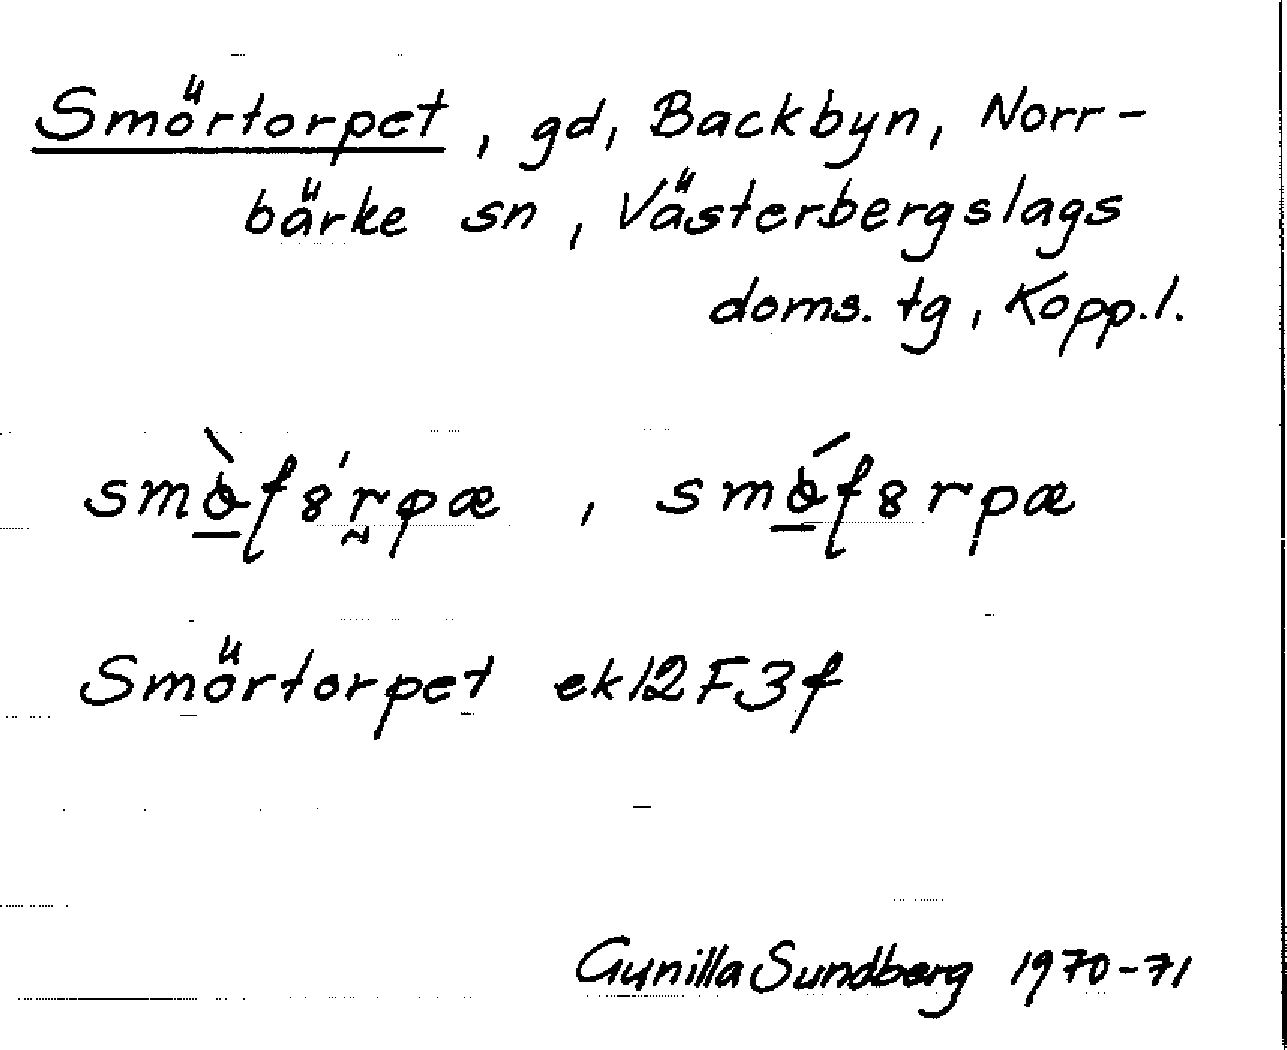 Smörtorpet, gd, Backbyn, Norr-
bärke sn, Västerbergslags
doms. tg, Kopp.l.
Smörtorpet ek 12F3f
Gunilla Sundberg 1970-71